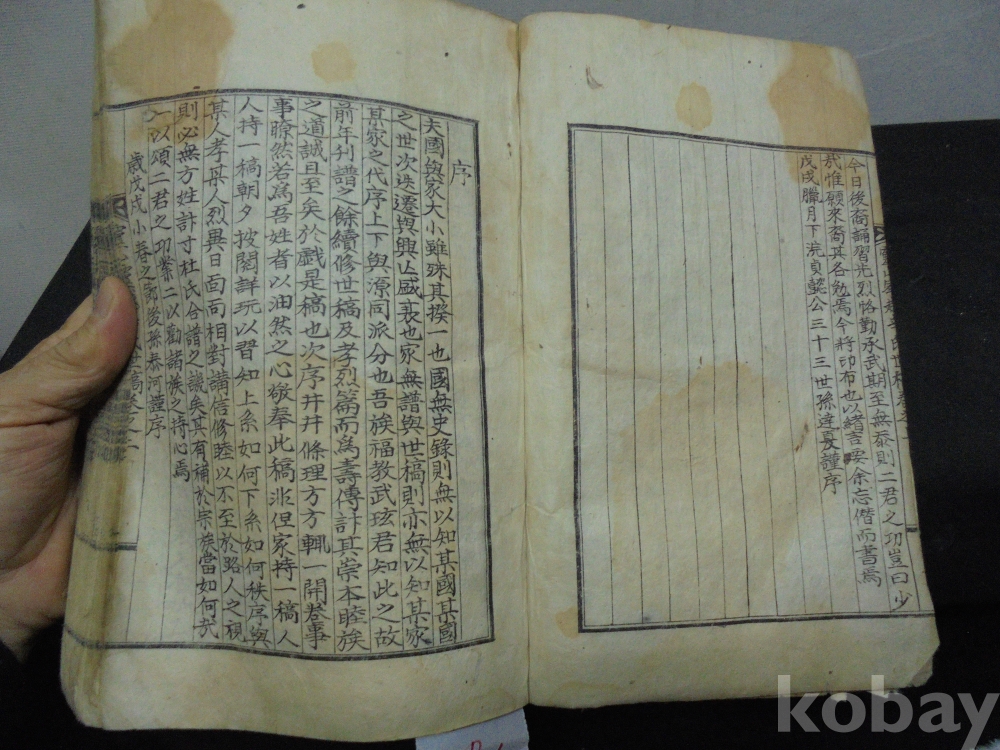 今日後裔誦習先烈恪勤承武期至無忝則二君之功豈曰少
㢤惟願來裔其各勉焉今將印布也以緒言要余忘僭而書焉
戊戌臘月下浣貞懿公三十三世孫建夏謹序
序
夫國與家大小雖殊其揆一也國無史錄則無以知其國某國
之世次迭遷與興亡盛衰也家無譜與世稿則亦無以知某家
某家之代序上下與源同派分也吾族福教武玹君知此之故
前年刊譜之餘續修世稿及孝烈篇而爲壽傳計其崇本睦族
之道誠且至矣於戲是稿也次序井井條理方方輒一開卷事
事瞭然若爲吾姓者以油然之心敬奉此稿非但家持一稿人
人持一稿朝夕披閱詳玩以習知上系如何下系如何秩序與
某人孝某人烈異日面面相對講信修睦以不至於路人之視
則必無方姓計寸杜氏合譜之誠矣其有補於宗族當如何㢤
一以頌二君之功業二以勸諸族之持心焉
歲戊戌小春之節後孫泰河謹序
kobay